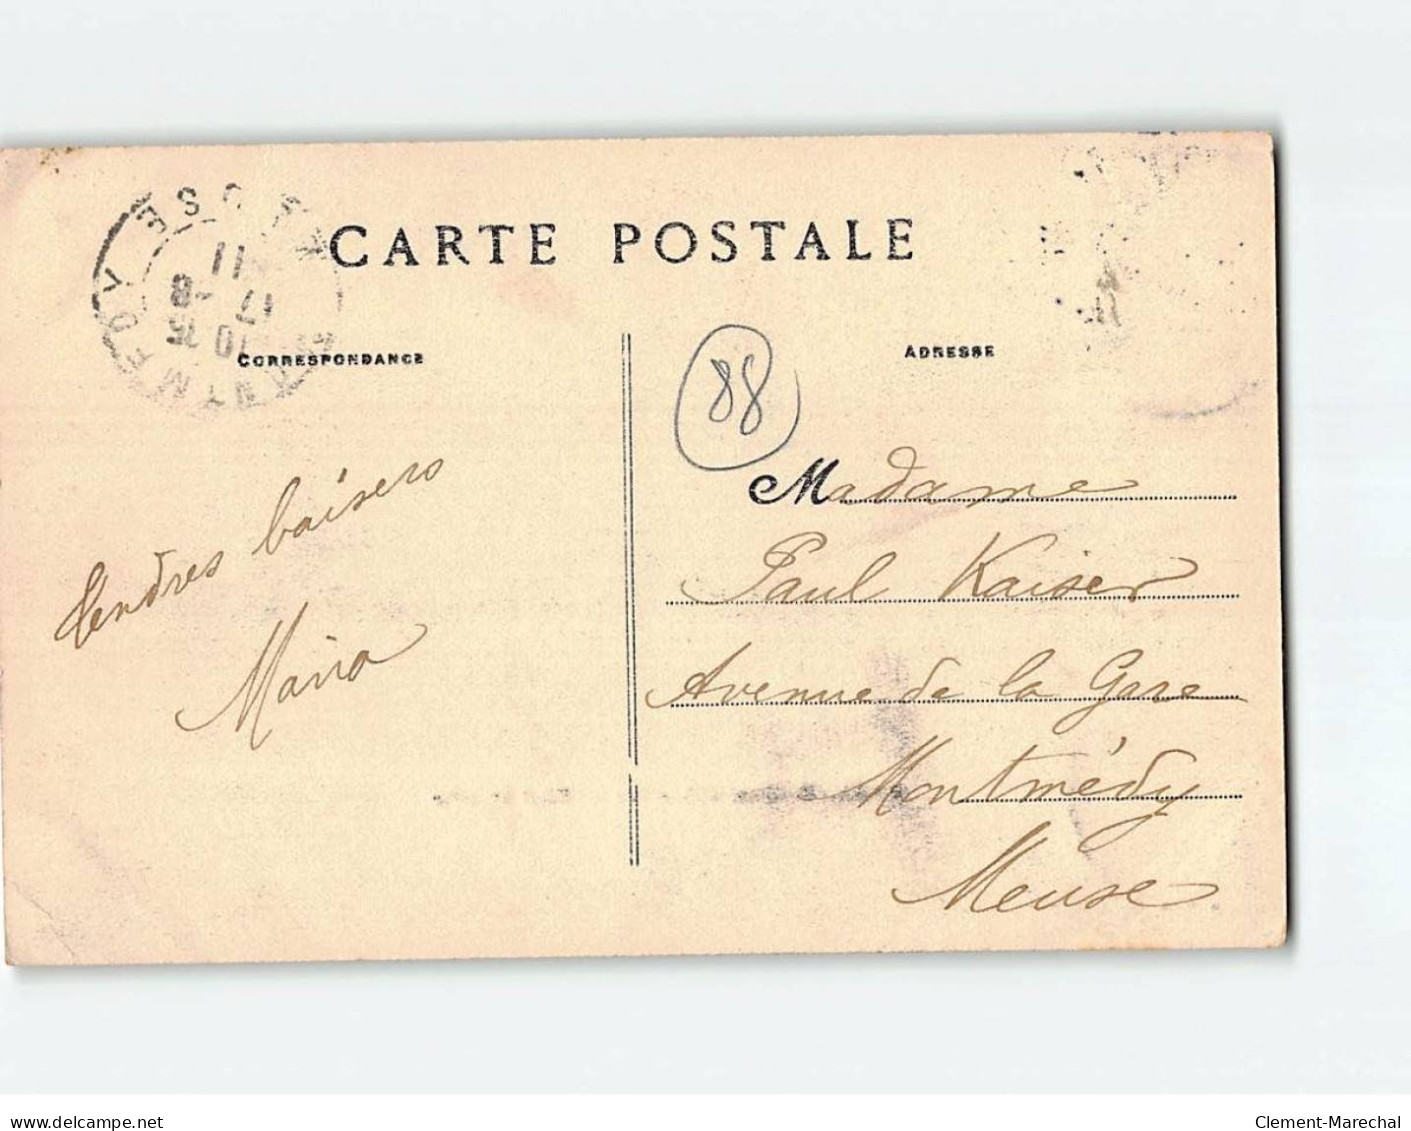 CARTE POSTALE
CORRESPONDANCE
ADRESSE
MONTMEDY MEUSE
10 35
17 -8
11
88
Tendres baisers
Maria
Madame
Paul Kaiser
Avenue de la Gare
Montmédy
Meuse
www.delcampe.net
Clement-Marechal